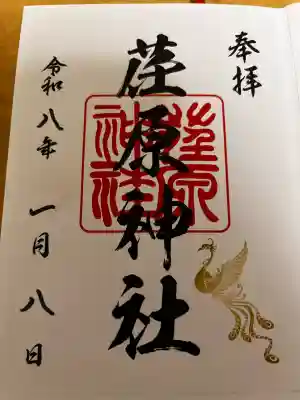 奉拝
荏原神社
荏原
神社
令和八年 一月 八日